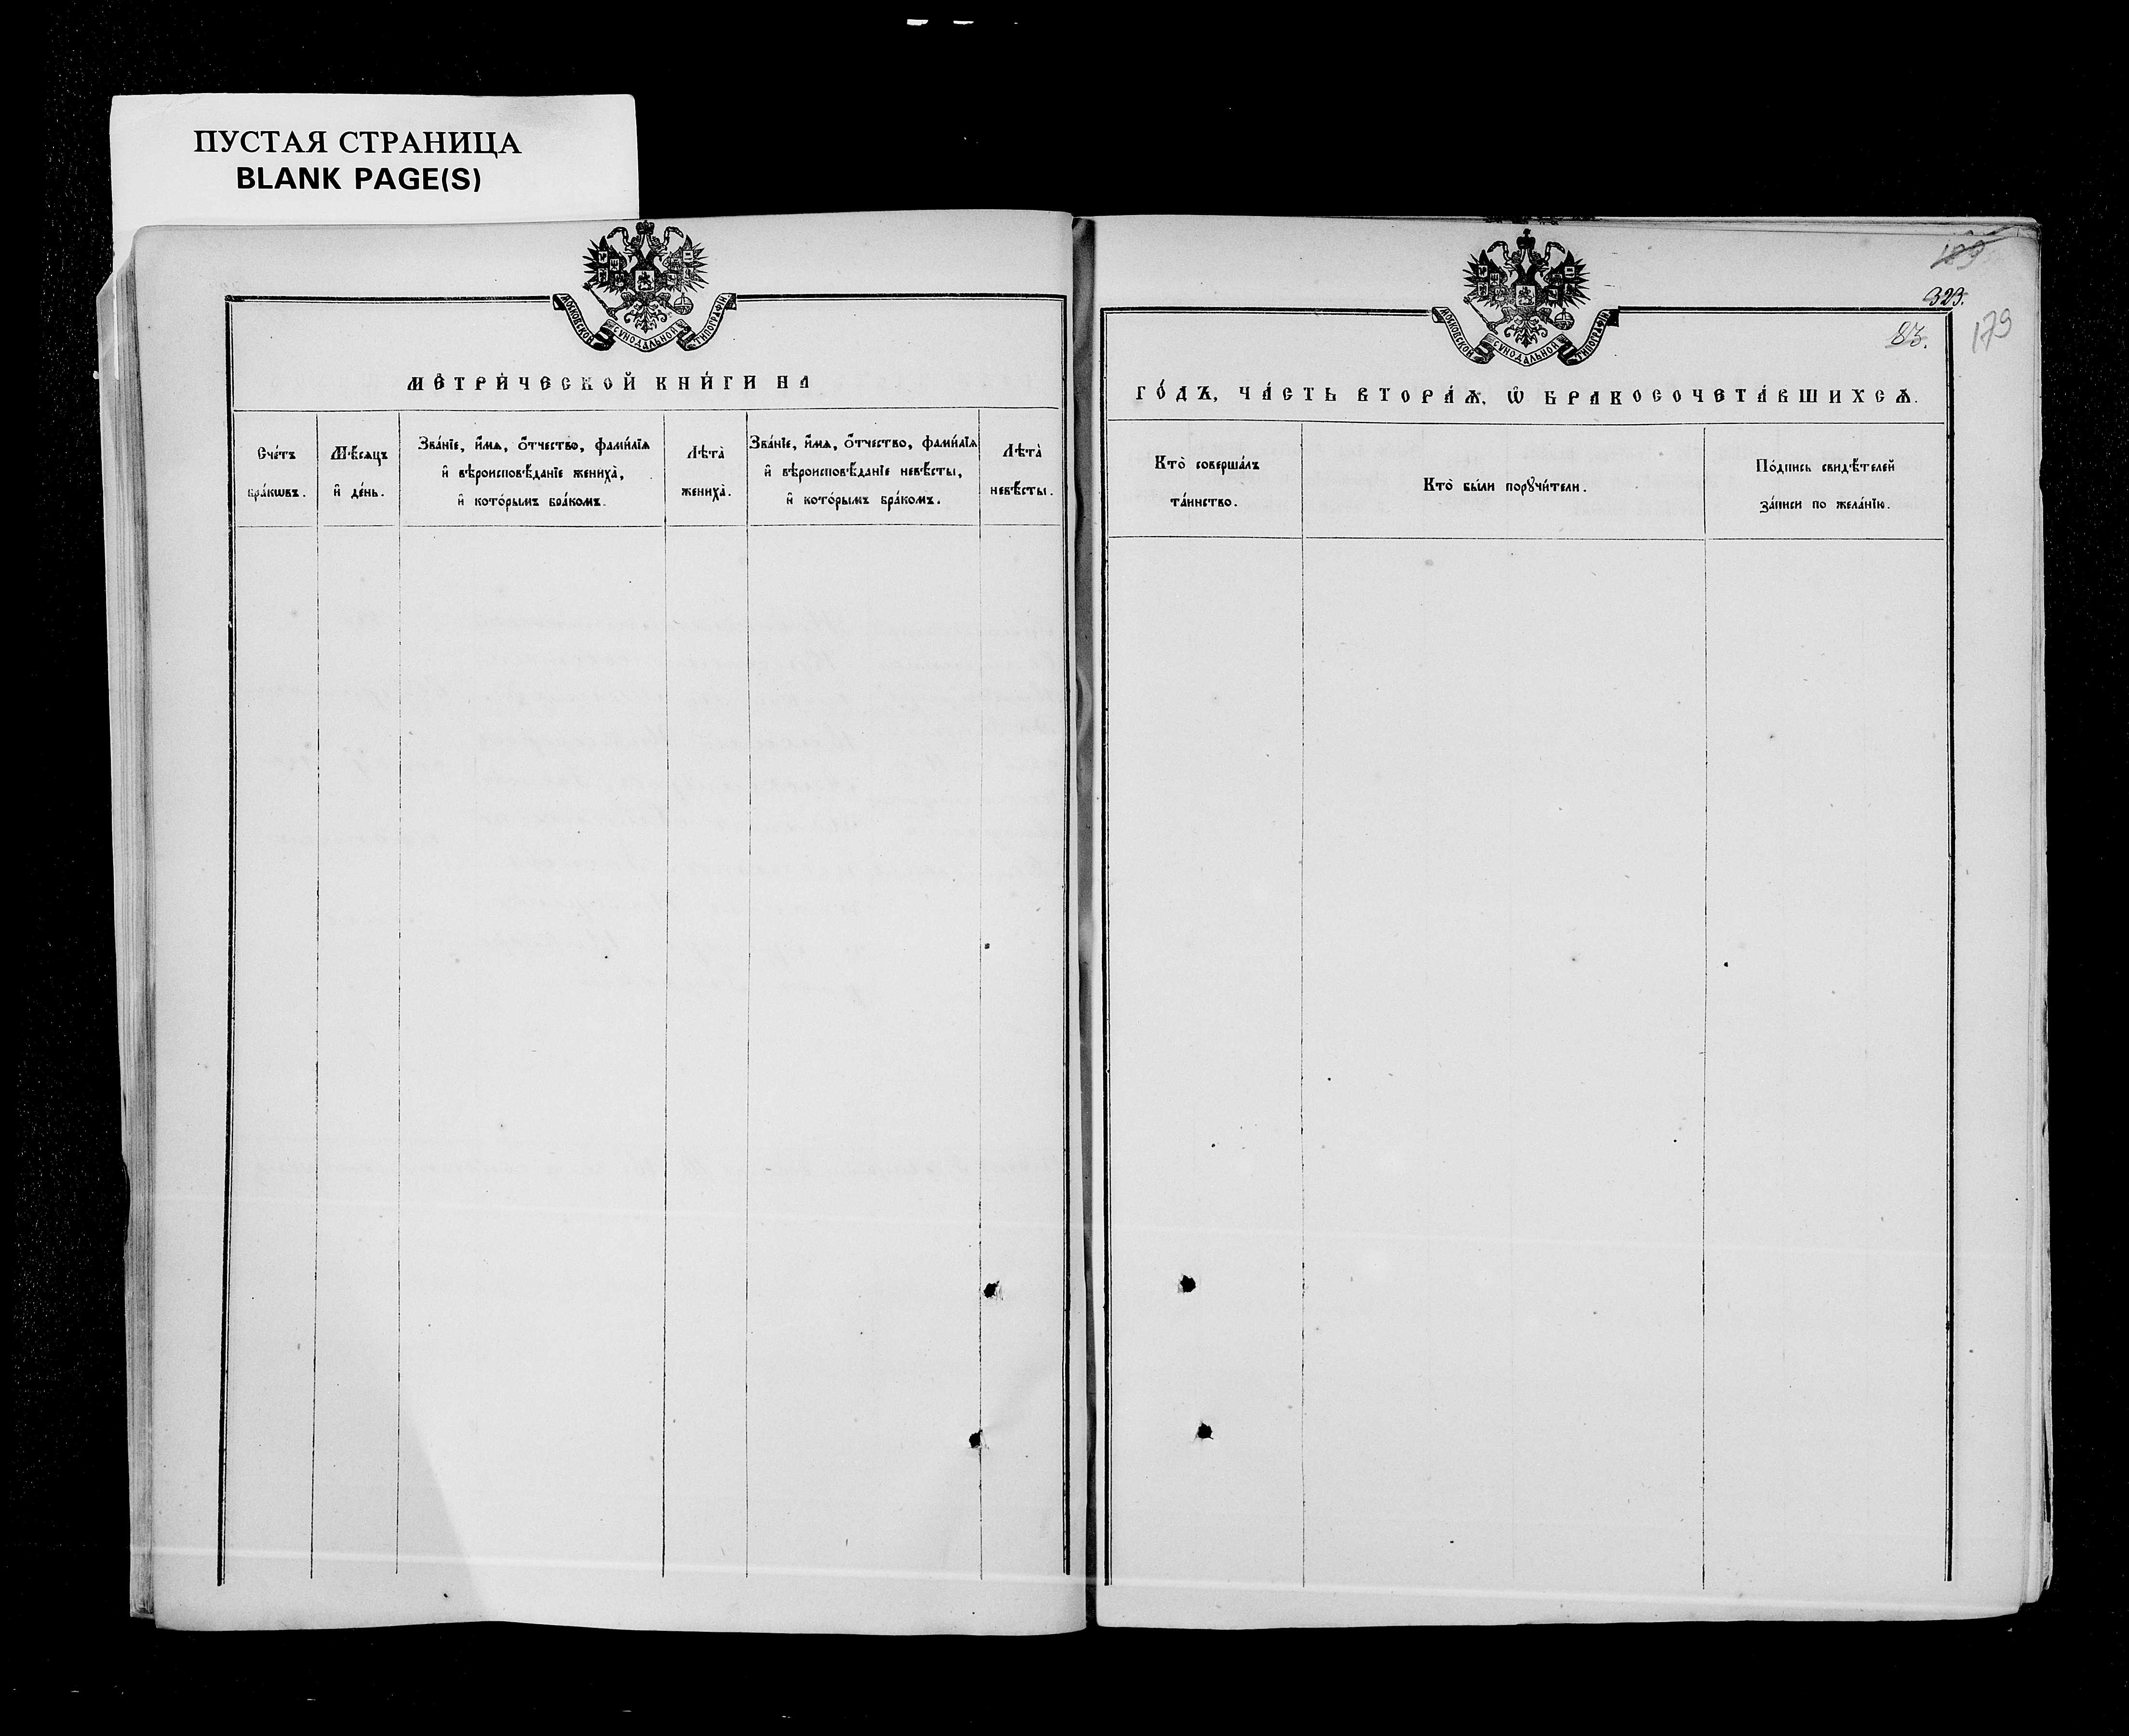 ПУСТАЯ СТРАНИЦА
BLANK PAGE(S)
МОСКОВСКОЙ СѴНОДАЛЬНОЙ ТИПОГРАФІИ
МЕТРИ́ЧЕСКОЙ КНИ́ГИ НА
Сче́тъ
бра́кѡвъ.
Мѣ́сѧцъ
и҆ де́нь.
Зва́нїе, и҆́мѧ, ѻ҆́тчество, фами́лїѧ
и҆ вѣроисповѣ́данїе жениха̀,
и҆ кото́рымъ бра́комъ.
Лѣ́та̀
жениха̀.
Зва́нїе, и҆́мѧ, ѻ҆́тчество, фами́лїѧ
и҆ вѣроисповѣ́данїе невѣ́сты,
и҆ кото́рымъ бра́комъ.
Лѣ́та̀
невѣ́сты.
189
323.
83.
179
МОСКОВСКОЙ СѴНОДАЛЬНОЙ ТИПОГРАФІИ
ГО́ДЪ, ЧА́СТЬ ВТОРА́Ѧ, Ѡ҆ БРАКОСОЧЕТА́ВШИХСѦ.
Кто̀ соверша́лъ
та́инство.
Кто̀ бы́ли порꙋчи́тели.
По́дпись свидѣ́телей
за́писи по жела́нїю.